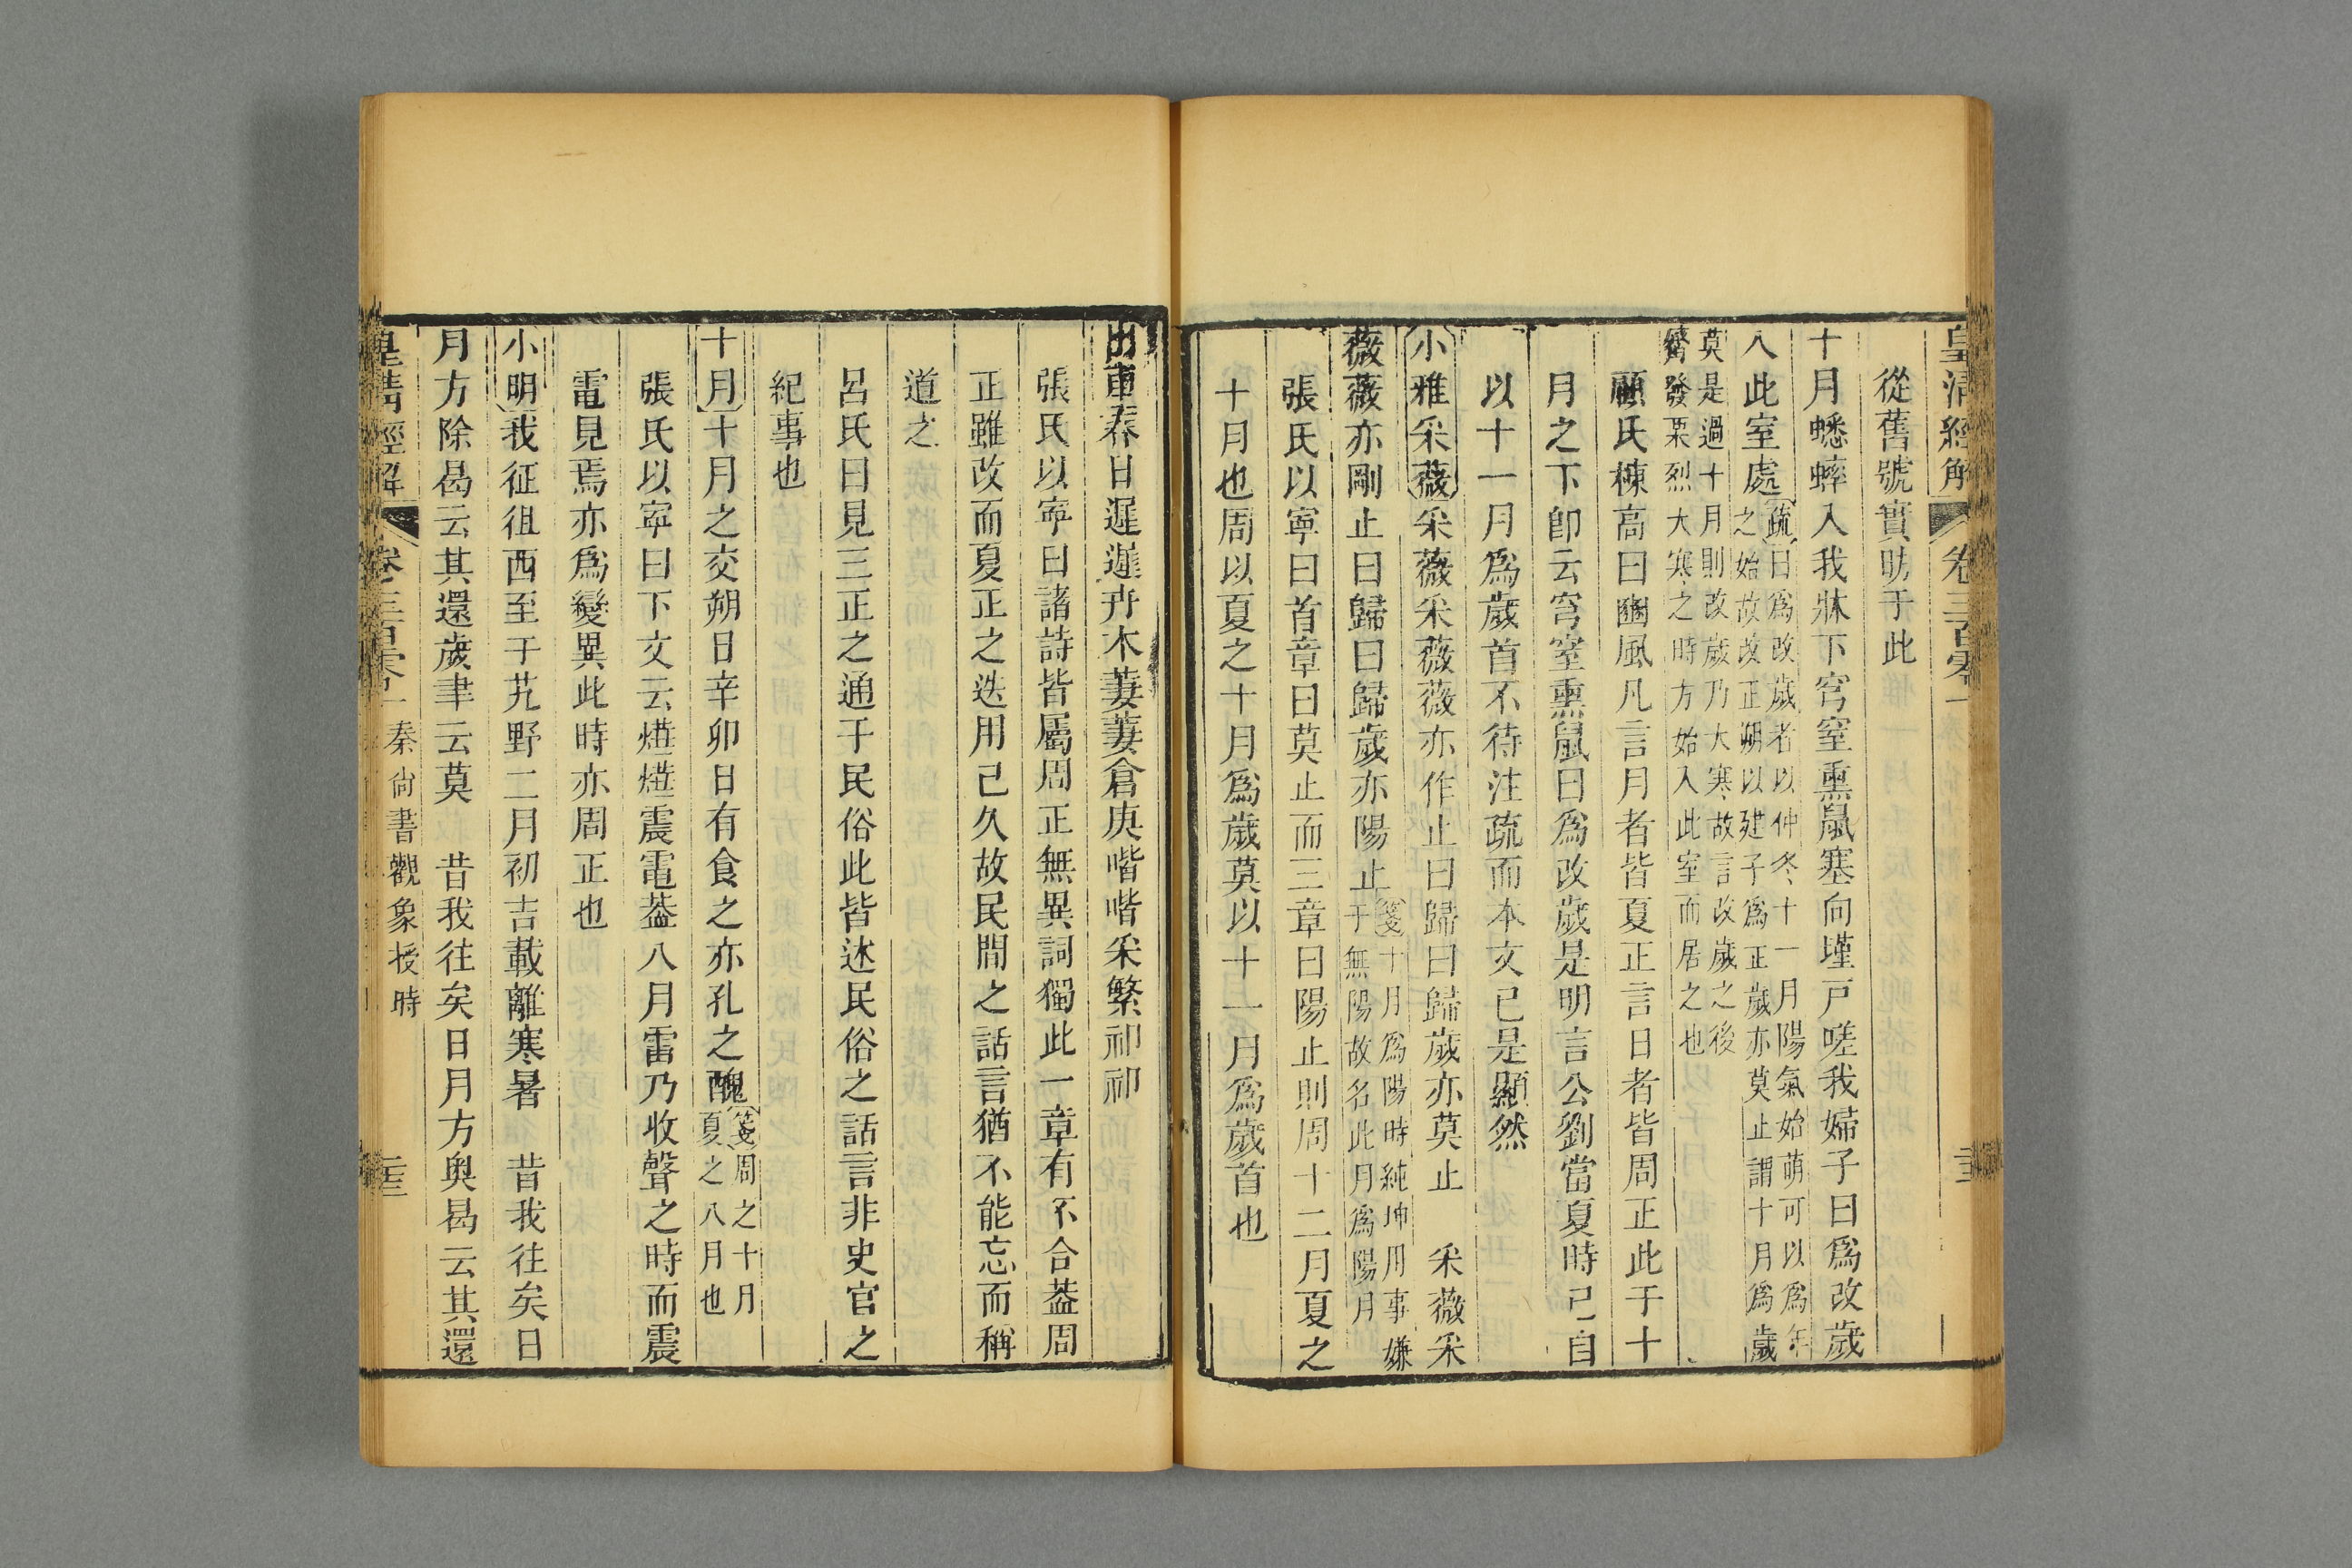 皇清經解 卷三百零一
從舊號實昉于此
十月蟋蟀入我牀下穹窒熏鼠塞向墐戸嗟我婦子曰爲改歲
入此室處疏曰爲改歲者以仲冬十一月陽氣始萌可以爲年
之始故改正朔以建子爲正歲亦莫止謂十月爲歲
莫是過十月則改歲乃大寒故言改歲之後
觱發栗烈大寒之時方始入此室而居之也
顧氏棟高曰豳風凡言月者皆夏正言日者皆周正此于十
月之下卽云穹窒熏鼠曰爲改歲是明言公劉當夏時已自
以十一月爲歲首不待注疏而本文已是顯然
小雅采薇采薇采薇薇亦作止曰歸曰歸歲亦莫止 采薇采
薇薇亦剛止曰歸曰歸歲亦陽止箋十月爲陽時純坤用事嫌
于無陽故名此月爲陽月
張氏以寧曰首章曰莫止而三章曰陽止則周十二月夏之
十月也周以夏之十月爲歲莫以十一月爲歲首也
出車春日遲遲卉木萋萋倉庚喈喈采繁祁祁
張氏以寧曰諸詩皆屬周正無異詞獨此一章有不合葢周
正雖改而夏正之迭用已久故民間之話言猶不能忘而稱
道之
呂氏曰見三正之通于民俗此皆述民俗之話言非史官之
紀事也
十月十月之交朔日辛卯日有食之亦孔之醜箋周之十月
夏之八月也
張氏以寧曰下文云爗爗震電葢八月雷乃收聲之時而震
電見焉亦爲變異此時亦周正也
小明我征徂西至于艽野二月初吉載離寒暑 昔我往矣日
月方除曷云其還歲聿云莫 昔我往矣日月方奥曷云其還
皇清經解 卷三百零一 秦尙書觀象授時